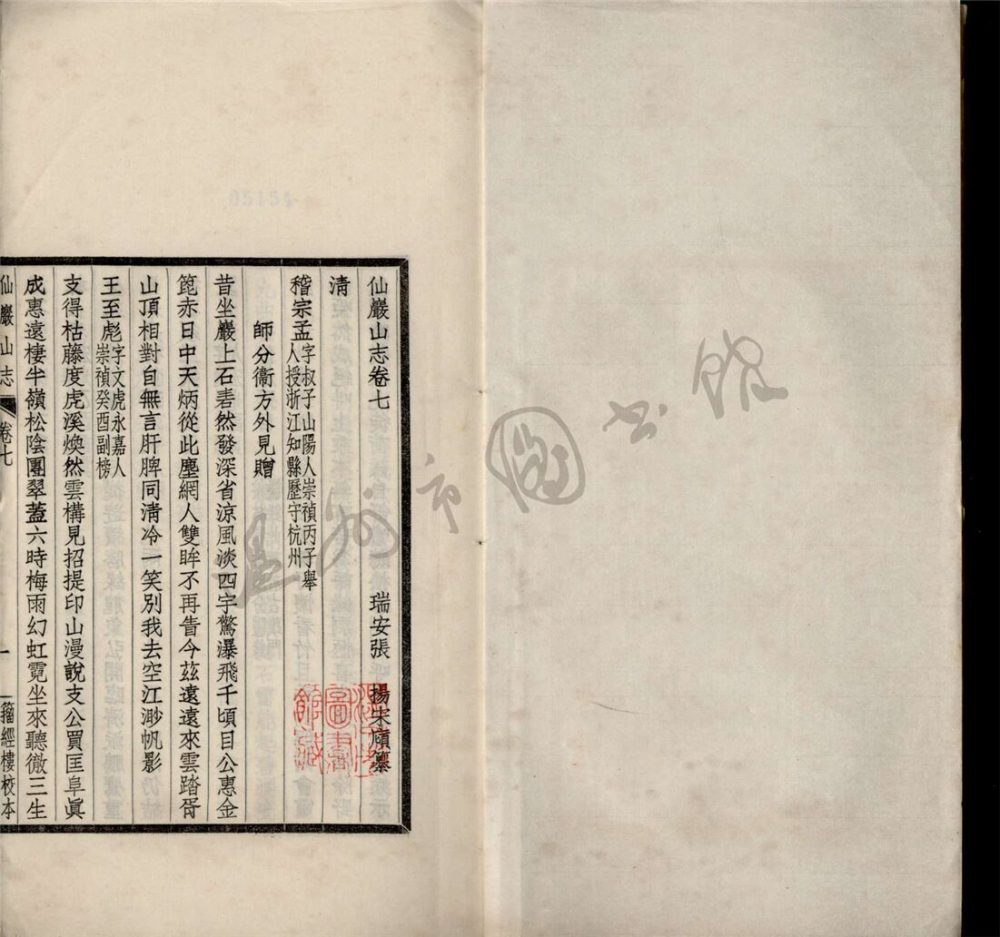 仙巖山志卷七
瑞安張 揚宋廎纂
清
嵇宗孟字叔子山陽人崇禎丙子舉人授浙江知縣歷守杭州
師分衞方外見贈
昔坐巖上石砉然發深省涼風淡四字驚瀑飛千頃目公惠金
篦赤日中天炳從此塵網人雙眸不再眚今茲遠遠來雲踏胥
山頂相對自無言肝脾同淸冷一笑別我去空江渺帆影
王至彪字文虎永嘉人崇禎癸酉副榜
支得枯藤度虎溪煥然雲構見招提印山漫說支公買匡阜眞
成惠遠棲半嶺松陰團翠蓋六時梅雨幻虹霓坐來聽徹三生
仙巖山志
卷七
一
籀經樓校本
溫州市圖書館
圖書館藏
05154